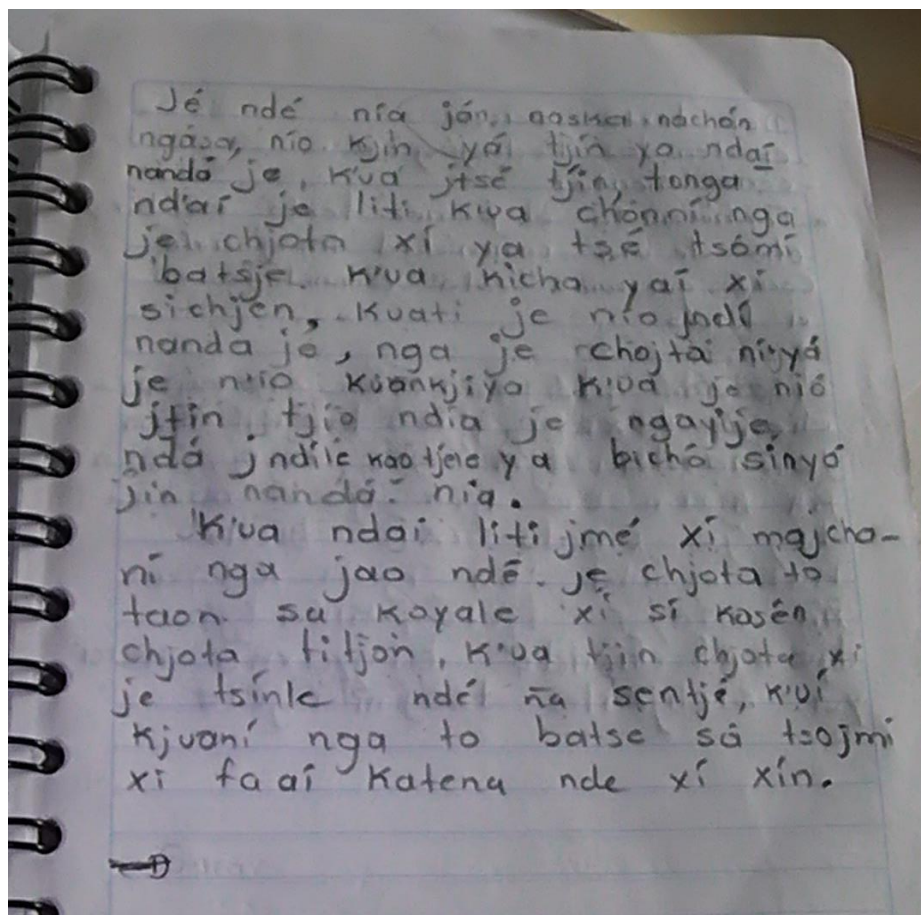 Jé ndé nía jón, naska náchón
ngása, nío kjín yá tjín ya ndaī
nandá je, k'ua jtsé tjín, tonga
ndaí je liti k'ua chónní nga
je chjota xí ya tsé tsómí
batsje k'ua kicha yaí xi
sichjén, kuati je nío jndí
nanda je, nga je chojtaí níyá
je nío kuankjiya k'ua je nió
jtín tjío ndia je ngayije
ndá jndíle kao tjele ya bichó sínyó
jin nandá nía.
K'ua ndai liti jmé xí majcha-
ní nga jao ndé je chjota to
taon sa koyale xí sí kasén
chjota titjon, k'ua tjin chjota xi
je tsínle ndé ña sentjé, k'uí
kjuaní nga to batse sá tsojmi
xi faaí katena nde xí xín.